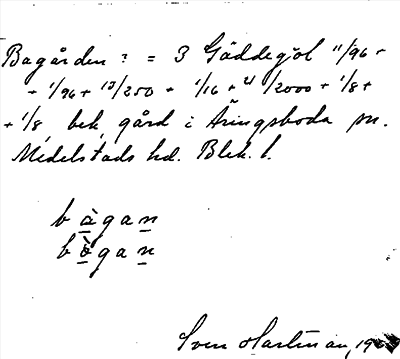 Bagården: = 3 Gäddegöl 11/96 +
+ 1/96 + 13/250 + 1/16 + 21/2000 + 1/8 +
+ 1/8, bek. gård i Åringsboda sn.
Medelstads hd. Blek. l.
b à g a n
b ò g a n
Sven Hartman, 19